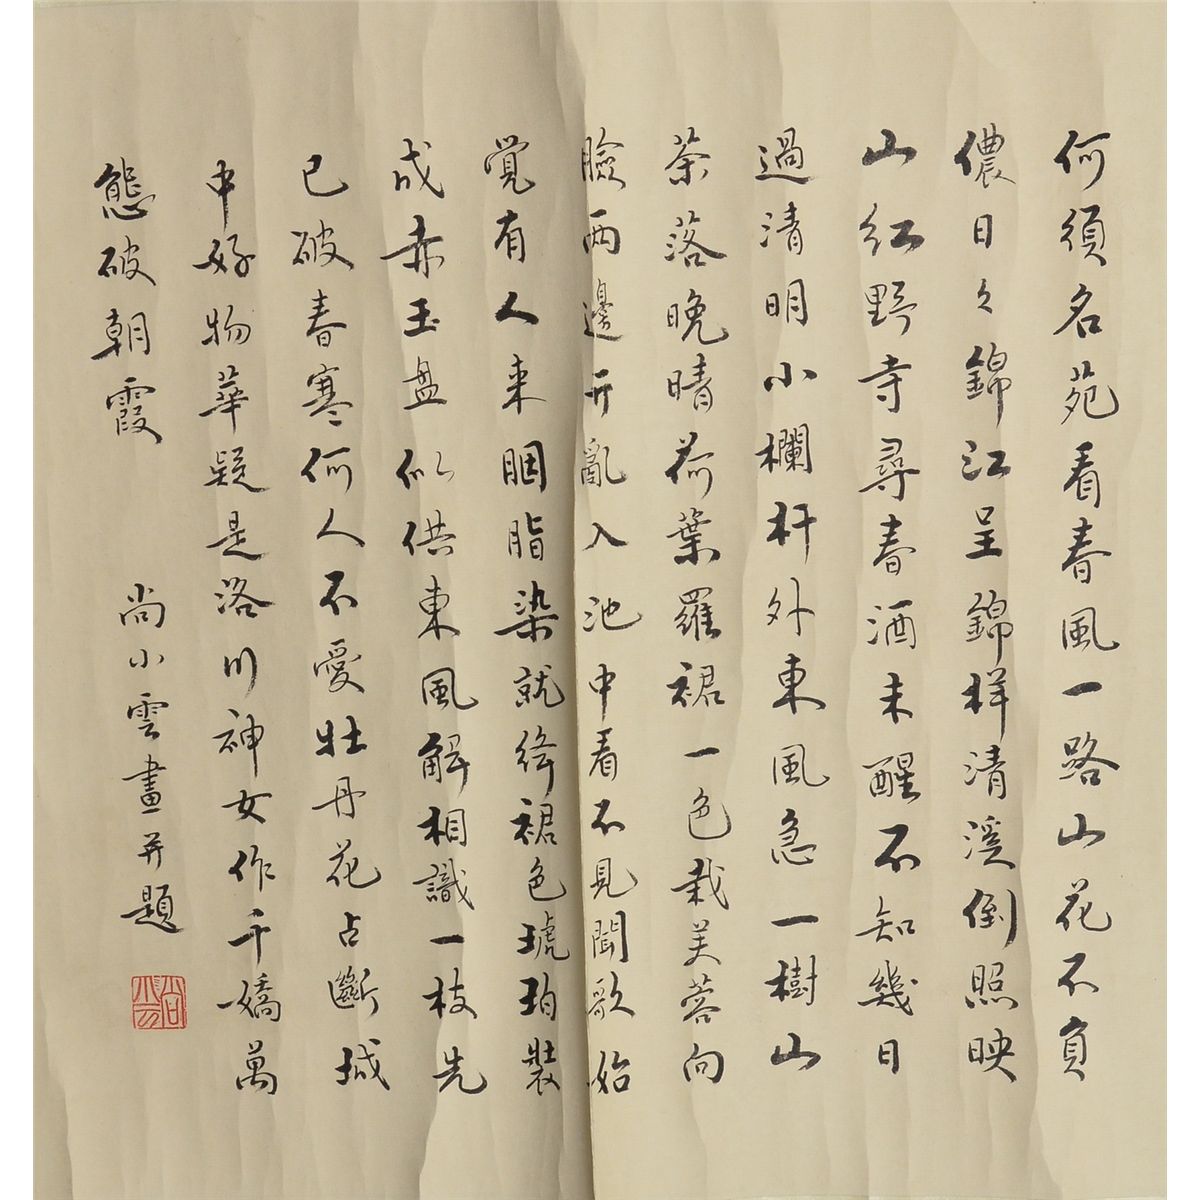 何須名苑看春風一路山花不負
儂日々錦江呈錦樣清溪倒照映
山紅野寺尋春酒未醒不知幾日
過清明小欄杆外東風急一樹山
茶落晚晴荷葉羅裙一色栽芙蓉向
臉兩邊開亂入池中看不見聞歌始
覺有人来胭脂染就絳裙色琥珀裝
成赤玉盘似供東風解相識一枝先
已破春寒何人不愛牡丹花占斷城
中好物華疑是洛川神女作千嬌萬
態破朝霞
尚小雲畫并題
尚小雲